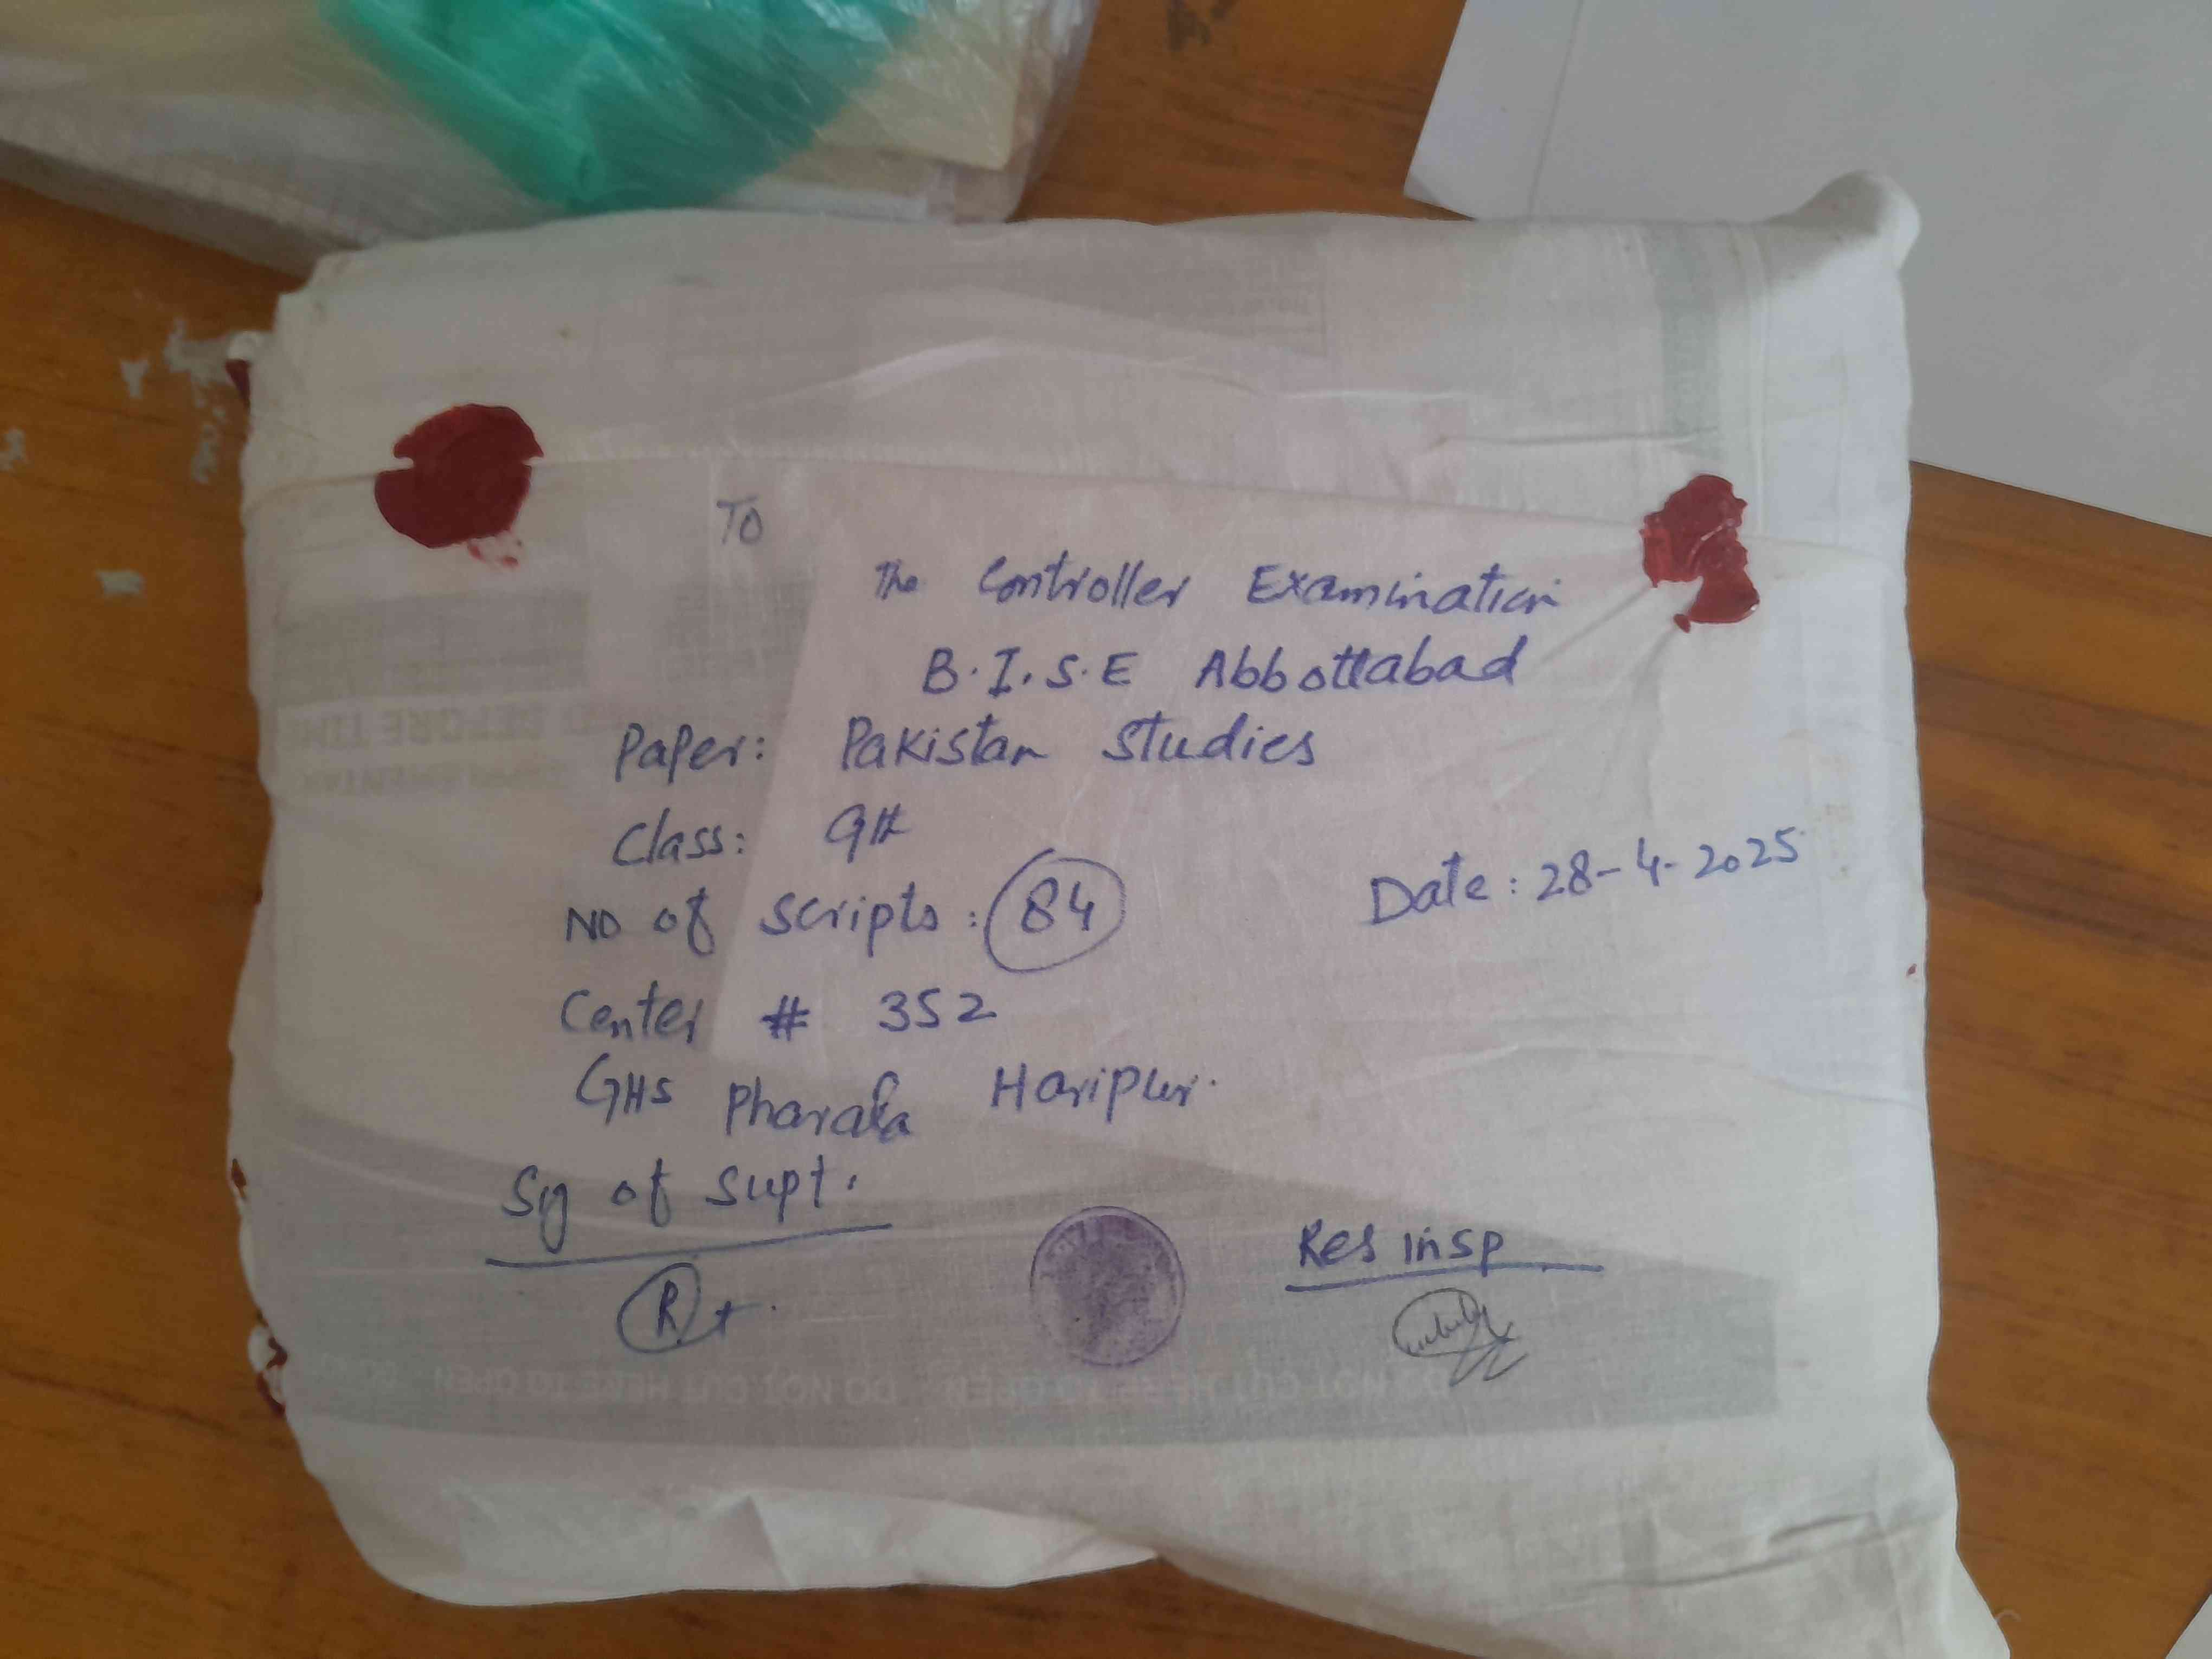 To
The Controller Examination
B.I.S.E Abbottabad
Paper: Pakistan Studies
Class: 9th
No of Scripts: 84
Date: 28-4-2025
Center # 352
GHS Pharala Haripur.
Sig of Supt.
Res insp
R
DO NOT CUT HERE TO OPEN DO NOT CUT HERE TO OPEN